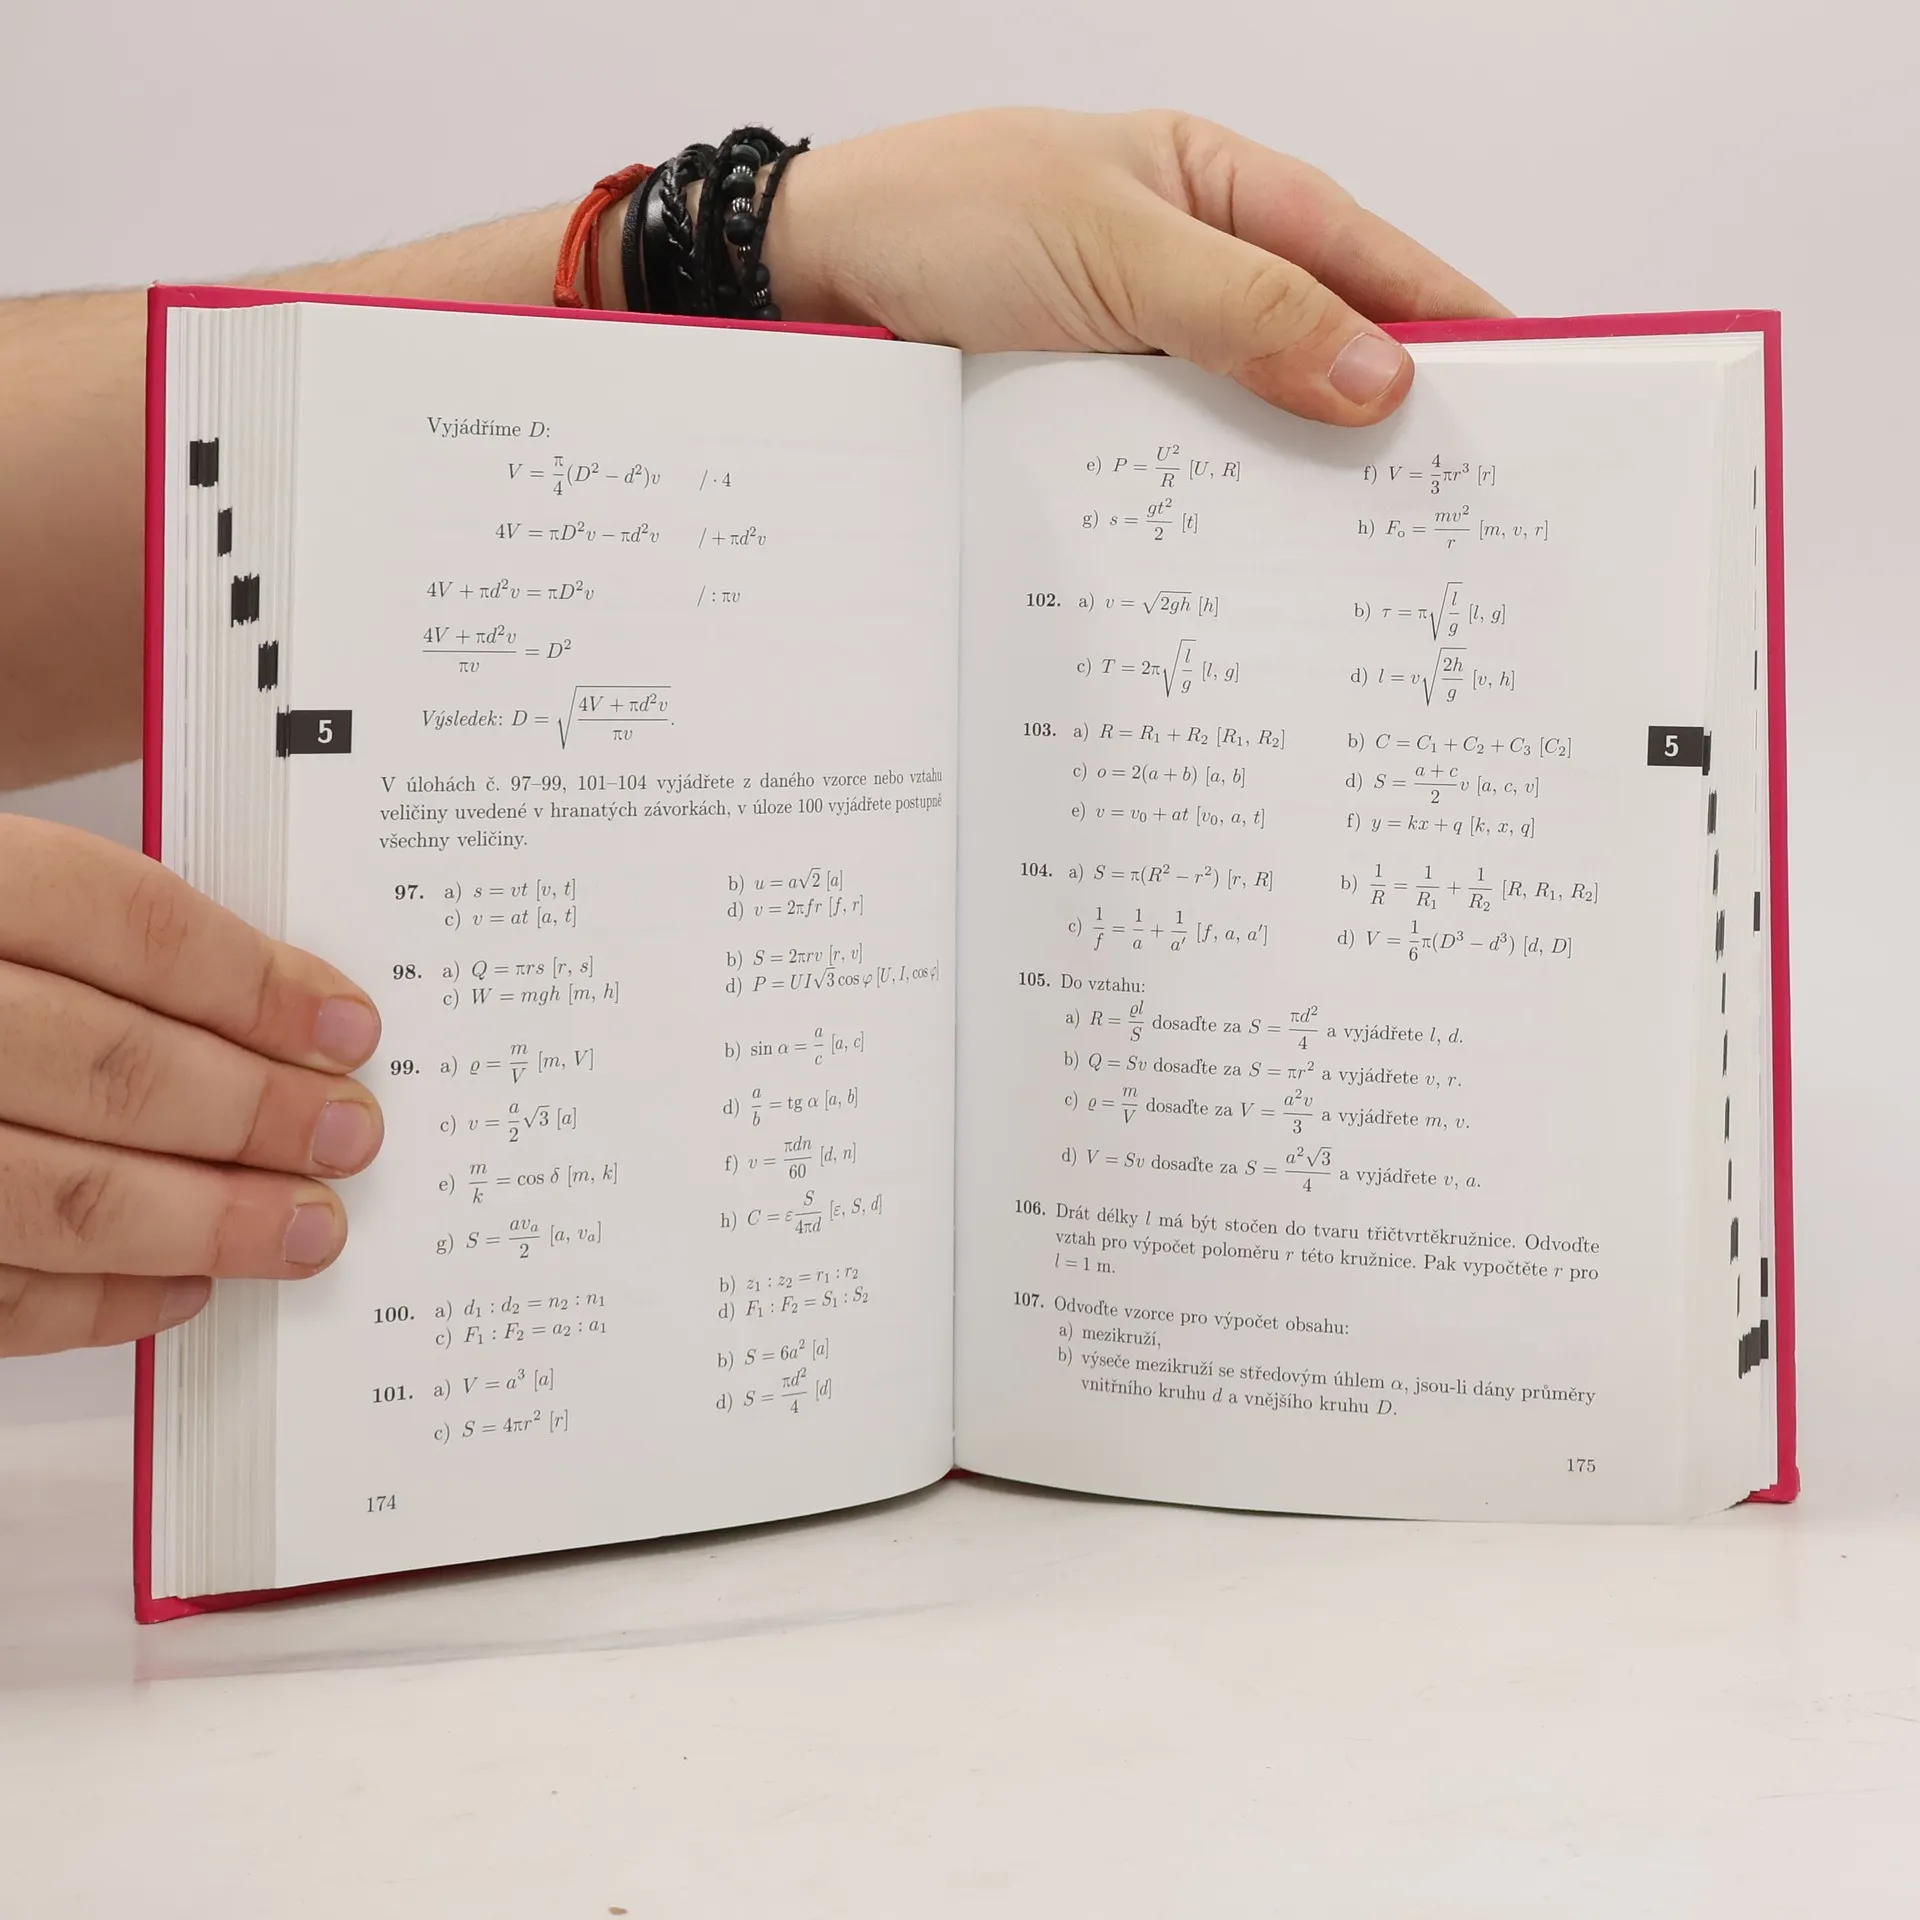 Vyjádříme D:
V = π/4(D² − d²)v / · 4
4V = πD²v − πd²v / + πd²v
4V + πd²v = πD²v / : πv
(4V + πd²v)/(πv) = D²
Výsledek: D = √((4V + πd²v)/(πv)).
5
V úlohách č. 97–99, 101–104 vyjádřete z daného vzorce nebo vztahu
veličiny uvedené v hranatých závorkách, v úloze 100 vyjádřete postupně
všechny veličiny.
97. a) s = vt [v, t] b) u = a√2 [a]
c) v = at [a, t] d) v = 2πfr [f, r]
98. a) Q = πrs [r, s] b) S = 2πrv [r, v]
c) W = mgh [m, h] d) P = UI√3 cos φ [U, I, cos φ]
99. a) ϱ = m/V [m, V] b) sin α = a/c [a, c]
c) v = a/2 √3 [a] d) a/b = tg α [a, b]
e) m/k = cos δ [m, k] f) v = πdn/60 [d, n]
g) S = avₐ/2 [a, vₐ] h) C = ε S/4πd [ε, S, d]
100. a) d₁ : d₂ = n₂ : n₁ b) z₁ : z₂ = r₁ : r₂
c) F₁ : F₂ = a₂ : a₁ d) F₁ : F₂ = S₁ : S₂
101. a) V = a³ [a] b) S = 6a² [a]
c) S = 4πr² [r] d) S = πd²/4 [d]
174
e) P = U²/R [U, R] f) V = 4/3 πr³ [r]
g) s = gt²/2 [t] h) Fₒ = mv²/r [m, v, r]
102. a) v = √(2gh) [h] b) τ = π√(l/g) [l, g]
c) T = 2π√(l/g) [l, g] d) l = v√(2h/g) [v, h]
103. a) R = R₁ + R₂ [R₁, R₂] b) C = C₁ + C₂ + C₃ [C₂]
c) o = 2(a + b) [a, b] d) S = (a + c)/2 v [a, c, v]
e) v = v₀ + at [v₀, a, t] f) y = kx + q [k, x, q]
5
104. a) S = π(R² − r²) [r, R] b) 1/R = 1/R₁ + 1/R₂ [R, R₁, R₂]
c) 1/f = 1/a + 1/a′ [f, a, a′] d) V = 1/6 π(D³ − d³) [d, D]
105. Do vztahu:
a) R = ϱl/S dosaďte za S = πd²/4 a vyjádřete l, d.
b) Q = Sv dosaďte za S = πr² a vyjádřete v, r.
c) ϱ = m/V dosaďte za V = a²v/3 a vyjádřete m, v.
d) V = Sv dosaďte za S = a²√3/4 a vyjádřete v, a.
106. Drát délky l má být stočen do tvaru třičtvrtěkružnice. Odvoďte
vztah pro výpočet poloměru r této kružnice. Pak vypočtěte r pro
l = 1 m.
107. Odvoďte vzorce pro výpočet obsahu:
a) mezikruží,
b) výseče mezikruží se středovým úhlem α, jsou-li dány průměry
vnitřního kruhu d a vnějšího kruhu D.
175